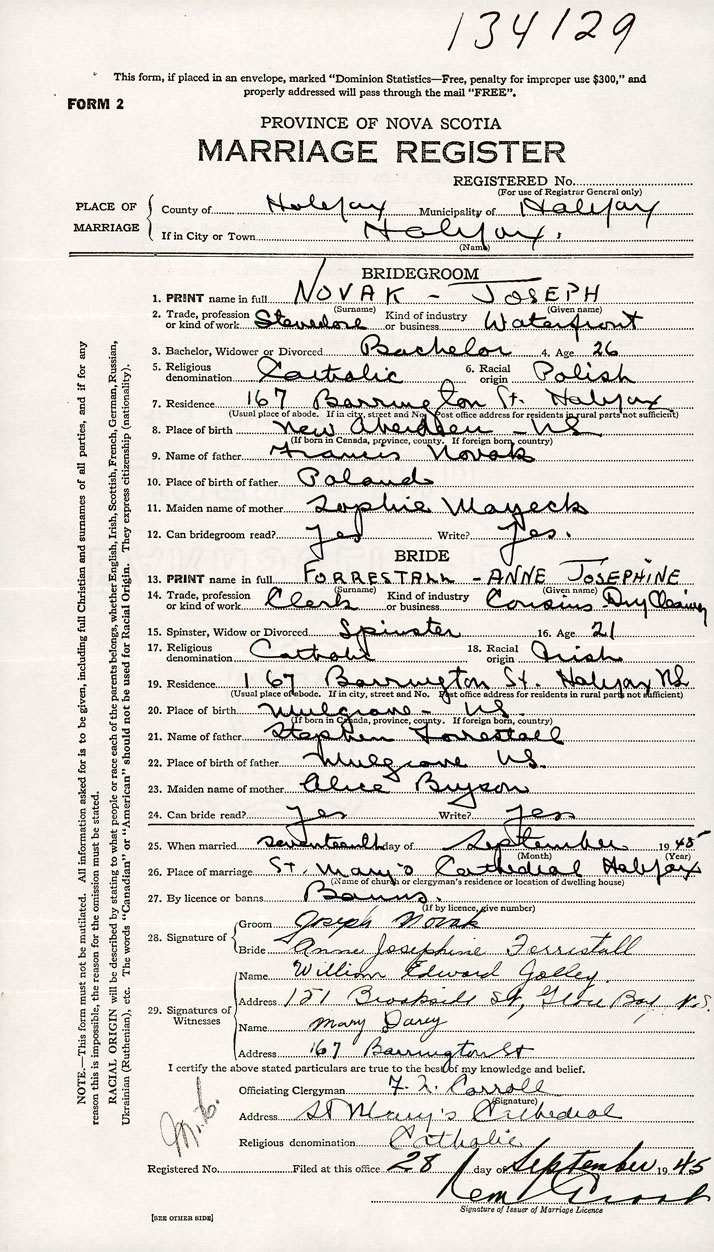 134129
This form, if placed in an envelope, marked "Dominion Statistics—Free, penalty for improper use $300," and
properly addressed will pass through the mail "FREE".
FORM 2
PROVINCE OF NOVA SCOTIA
MARRIAGE REGISTER
REGISTERED No.
(For use of Registrar General only)
PLACE OF MARRIAGE
County of Halifax Municipality of Halifax
If in City or Town Halifax.
(Name)
BRIDEGROOM
1. PRINT name in full NOVAK - JOSEPH
(Surname) (Given name)
2. Trade, profession or kind of work Stevedore Kind of industry or business Waterfront
3. Bachelor, Widower or Divorced Bachelor 4. Age 26
5. Religious denomination Catholic 6. Racial origin Polish
7. Residence 167 Barrington St. Halifax
(Usual place of abode. If in city, street and No. Post office address for residents in rural parts not sufficient)
8. Place of birth New Aberdeen - NS
(If born in Canada, province, county. If foreign born, country)
9. Name of father Francis Novak
10. Place of birth of father Poland
11. Maiden name of mother Sophie
12. Can bridegroom read? Yes Write? Yes.
BRIDE
13. PRINT name in full FORRESTALL - ANNE JOSEPHINE
(Surname) (Given name)
14. Trade, profession or kind of work Clerk Kind of industry or business Cousins Dry Cleaning
15. Spinster, Widow or Divorced Spinster 16. Age 21
17. Religious denomination Catholic 18. Racial origin Irish
19. Residence 167 Barrington St. Halifax NS
(Usual place of abode. If in city, street and No. Post office address for residents in rural parts not sufficient)
20. Place of birth Mulgrave - NS.
(If born in Canada, province, county. If foreign born, country)
21. Name of father Stephen Forrestall
22. Place of birth of father Mulgrave NS.
23. Maiden name of mother Alice Bryson
24. Can bride read? Yes Write? Yes
25. When married seventeenth day of September 1945
(Month) (Year)
26. Place of marriage St. Mary's Cathedral Halifax
(Name of church or clergyman's residence or location of dwelling house)
27. By licence or banns Banns.
(If by licence, give number)
28. Signature of
Groom Joseph Novak
Bride Anne Josephine Forrestall
29. Signatures of Witnesses
Name William Edward
Address 151 Brookside St, Glace Bay N.S.
Name Mary
Address 167 Barrington St
I certify the above stated particulars are true to the best of my knowledge and belief.
Officiating Clergyman Carroll
(Signature)
Address St Mary's Cathedral
Religious denomination Catholic
Registered No. Filed at this office 28 day of September 1945
Signature of Issuer of Marriage Licence
[SEE OTHER SIDE]
NOTE.—This form must not be mutilated. All information asked for is to be given, including full Christian and surnames of all parties, and if for any
reason this is impossible, the reason for the omission must be stated.
RACIAL ORIGIN will be described by stating to what people or race each of the parents belongs, whether English, Irish, Scottish, French, German, Russian,
Ukrainian (Ruthenian), etc. The words "Canadian" or "American" should not be used for Racial Origin. They express citizenship (nationality).